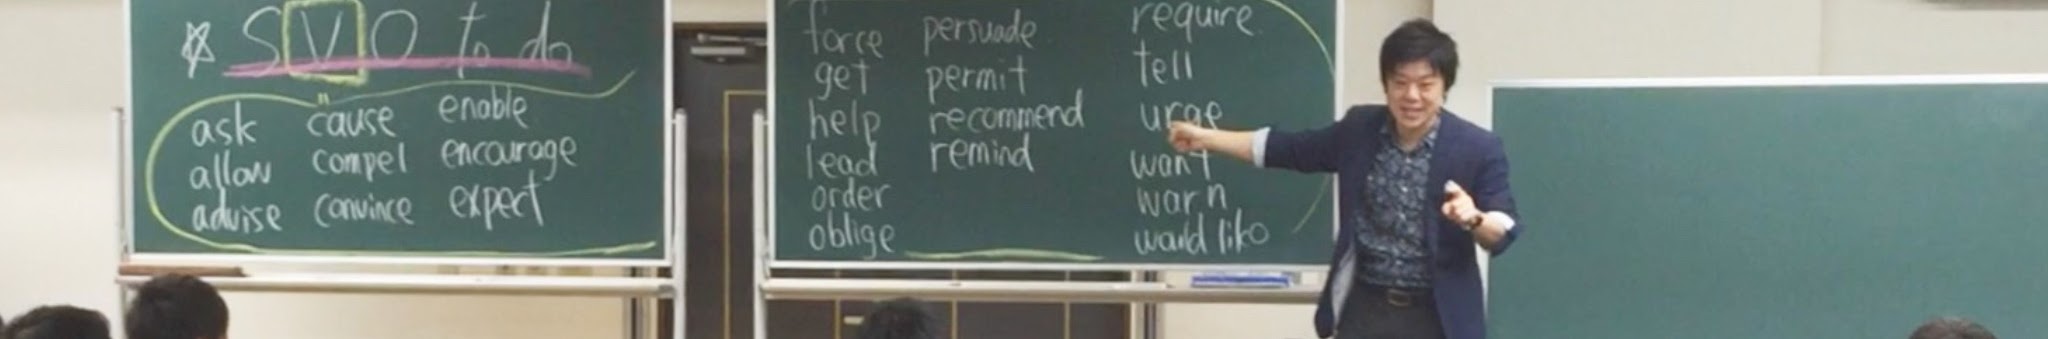 ☆ SVO to do
ask cause enable
allow compel encourage
advise convince expect
force persuade require
get permit tell
help recommend urge
lead remind want
order warn
oblige would like